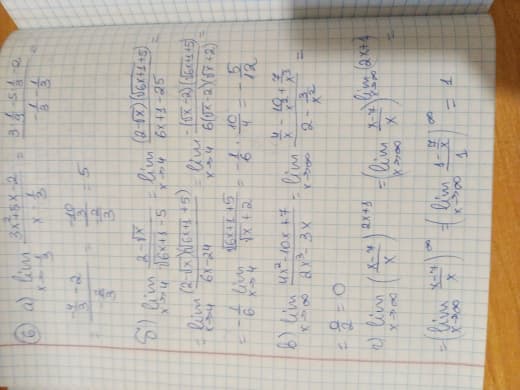 6) а) lim x→-1/3 (3x²+5x-2)/(x-1/3) = (3·1/9-5·1/3-2)/(-1/3-1/3) =
(-4/3-2)/(-2/3) = (-10/3)/(-2/3) = 5
б) lim x→4 (2-√x)/(√(6x+1)-5) = lim x→4 (2-√x)(√(6x+1)+5)/(6x+1-25) =
= lim x→4 (2-√x)(√(6x+1)+5)/(6x-24) = lim x→4 -(√x-2)(√(6x+1)+5)/(6(√x-2)(√x+2)) =
= -1/6 lim x→4 (√(6x+1)+5)/(√x+2) = -1/6 · 10/4 = -5/12
в) lim x→∞ (4x²-10x+7)/(2x³-3x) = lim x→∞ (4/x-10/x²+7/x³)/(2-3/x²) =
= 0/2 = 0
г) lim x→∞ ((x-7)/x)^(2x+1) = (lim x→∞ (x-7)/x)^(lim x→∞ (2x+1)) =
= (lim x→∞ (x-7)/x)^∞ = (lim x→∞ (1-7/x)/1)^∞ = 1